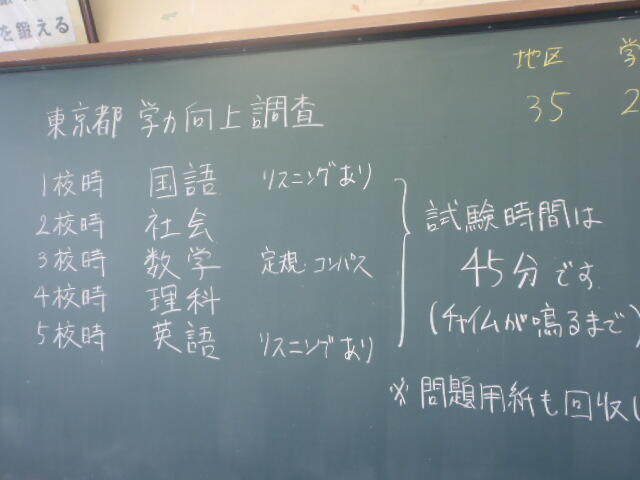 を鍛える
地区 学
35 2
東京都 学力向上調査
1校時 国語 リスニングあり
2校時 社会
3校時 数学 定規・コンパス
4校時 理科
5校時 英語 リスニングあり
試験時間は
45分です
(チャイムが鳴るまで)
※問題用紙も回収し